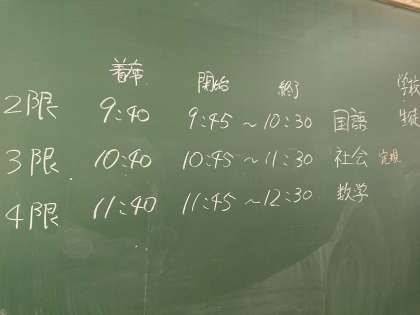 着席 開始 終了 学校
2限 9:40 9:45～10:30 国語 生徒
3限 10:40 10:45～11:30 社会
4限 11:40 11:45～12:30 数学